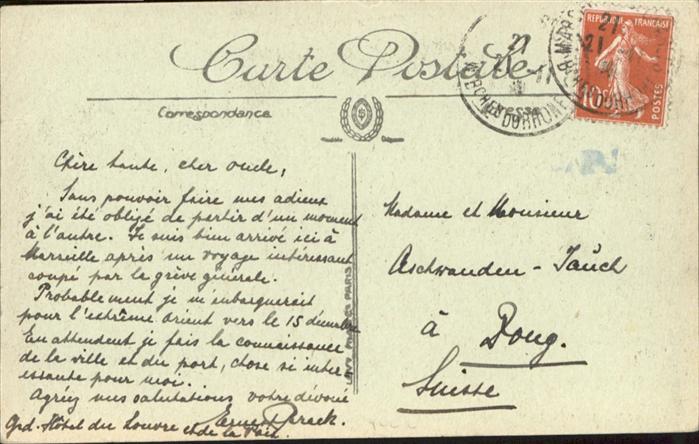 Carte Postale
Correspondance
Adresse
REPUBLIQUE FRANÇAISE
10c
POSTES
21
MARSEILLE
BCHES DU RHONE
Chère tante, cher oncle,
Sans pouvoir faire mes adieux
j'ai été obligé de partir d'un moment
à l'autre. Je suis bien arrivé ici à
Marseille après un voyage intéressant
coupé par le grève générale.
Probablement je m'enbarquerait
pour l'extrême orient vers le 15 décembre
En attendent je fais la connaissance
de la ville et du port, chose si inter
essante pour moi.
Agréez mes salutations votre dévoué
Ernest
Grd. Hôtel du Louvre et de la Paix.
LEVY FILS & CIE PARIS
Madame et Monsieur
Aschwanden-Jauch
à Zoug.
Suisse